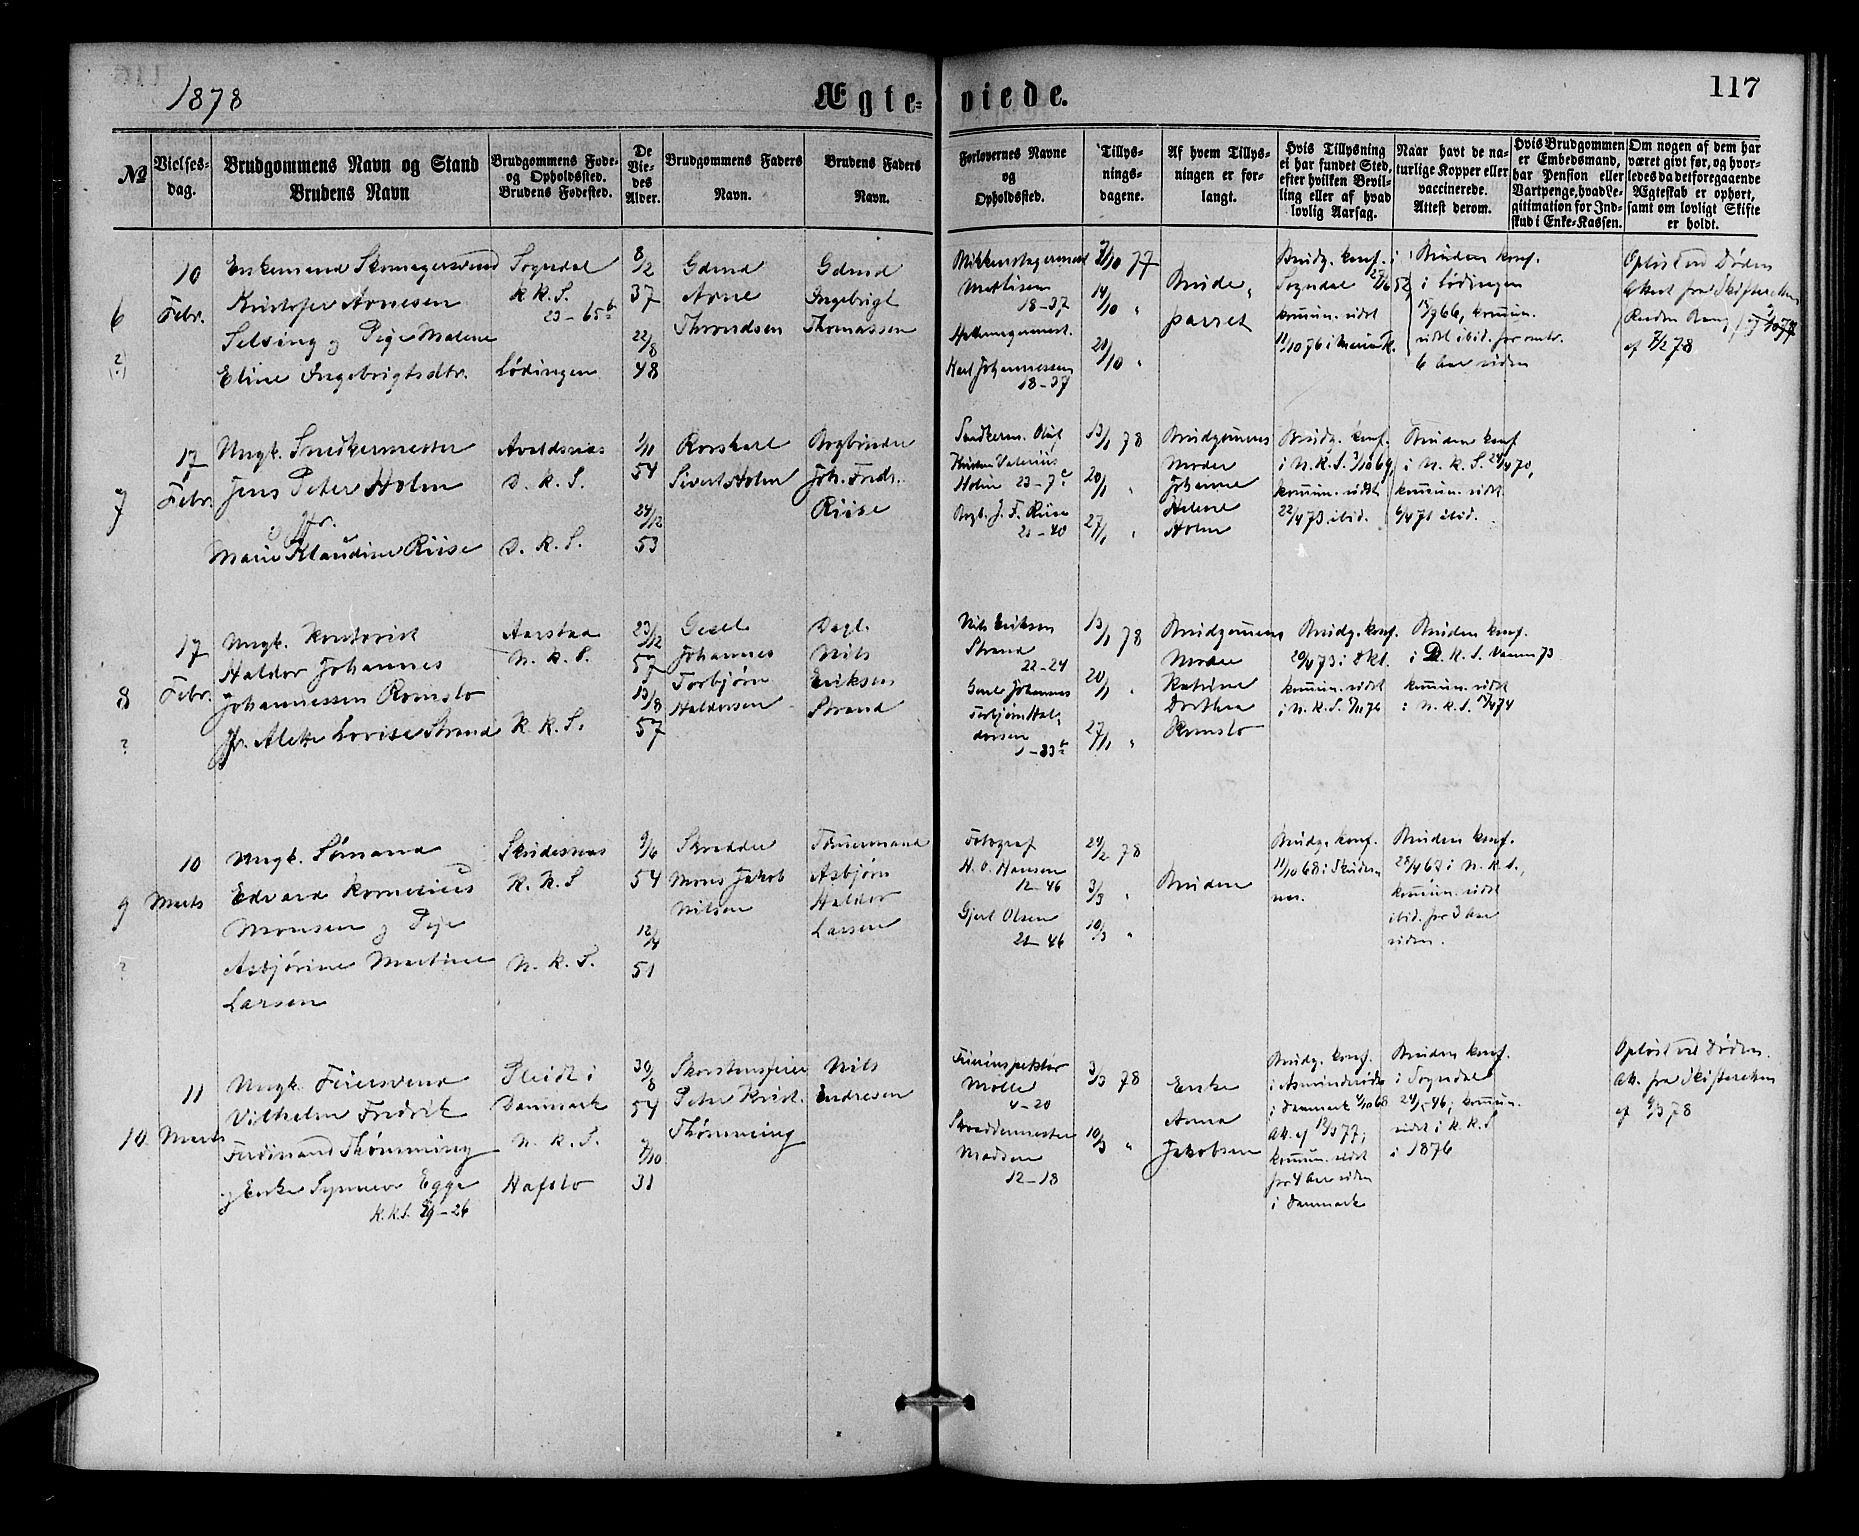 1878
Ægte-
viede.
117
№
Vielses-
dag.
Brudgommens Navn og Stand
Brudens Navn
Brudgommens Føde-
og Opholdssted.
Brudens Fødested.
De
Vie-
des
Alder.
Brudgommens Faders
Navn.
Brudens Faders
Navn.
Forlovernes Navne
og
Opholdssted.
Tillys-
nings-
dagene.
Af hvem Tillys-
ningen er for-
langt.
Hvis Tillysning
ei har fundet Sted,
efter hvilken Bevil-
ling eller af hvad
lovlig Aarsag.
Naar havt de na-
turlige Kopper eller
vaccinerede.
Attest derom.
Hvis Brudgommen
er Embedsmand,
har Pension eller
Vartpenge, hvad Le-
gitimation for Ind-
skud i Enke-Kassen.
Om nogen af dem har
været gift før, og hvor-
ledes da det foregaaende
Ægteskab er ophørt,
samt om lovligt Skifte
er holdt.
6
10
Febr.
Enkemand Skomagersvend
Kristofer Arnesen
Selsing og Pige Malene
Eline Ingebrigtsdtr.
Sogndal
K. K. S.
23 - 65 b
Lødingen
8/2
37
22/8
48
Gdmd
Arne
Throndsen
Gdmd
Ingebrigt
Thomassen
Mathisen
18-37
Karl Johannessen
18-37
7/10 77
14/10 "
21/10 "
Brude-
parret
Brudg. konf. i
Sogndal 27/6 52,
kommun. sidst
11/10 76 i
Bruden konf.
i Lødingen
15/9 66, kommun.
sidst ibid. for omtr.
6 Aar siden
Opløst ved Døden
Attest fra Skifteretten
af 7/2 78
7
17
Febr.
Ungk. Snedkermester
Jens Peter Holm
og Jfr.
Marie Klaudine Riise
Avaldsnæs
D. K. S.
D. K. S.
1/11
54
24/12
53
Rorskarl
Sivert Holm
Bogbinder
Joh. Fredr.
Riise
Snedkerm. Oluf
Kristen Valerius
Holm 23-7
Bogb. J. F. Riise
21-40
13/1 78
20/1 "
27/1 "
Brudgommens
Moder
Johanne
Helene
Holm
Brudg. konf.
i N. K. S. 3/10 69,
kommun. sidst
22/4 73 ibid.
Bruden konf.
i N. K. S. 24/4 70,
kommun. sidst
6/4 71 ibid.
8
17
Febr.
Ungk. Kontorist
Haldor Johannes
Johannessen Romslo
Jfr. Alette Lovise Strand
Aarstad
N. K. S.
K. K. S.
23/12
57
13/8
57
Johannes
Torbjørn
Haldorsen
Dagl.
Nils
Eriksen
Strand
Nils Eriksen
Strand
22-24
Johannes
Torbjørn Hal-
dorsen
1-33
13/1 78
20/1 "
27/1 "
Brudgommens
Moder
Katrine
Dorthea
Romslo
Brudg. konf.
20/4 73 i
kommun. sidst
i N. K. S. 76
Bruden konf.
i D. K. S. 73
kommun. sidst
i N. K. S. 74
9
10
Marts
Ungk. Sømand
Edvard Kornelius
Monsen og Pige
Asbjørine Martine
Larsen
Skudesnæs
K. K. S
N. K. S.
9/6
54
12/4
51
Skrædder
Mons Jakob
Nilsen
Asbjørn
Haldor
Larsen
Fotograf
H. O. Hansen
12-46
Gjert Olsen
21-46
24/2 78
3/3 "
10/3 "
Bruden
Brudg. konf.
11/10 68 i Skudes-
næs.
Bruden konf.
28/4 67 i N. K. S.,
kommun. sidst
ibid. for 3 Aar
siden.
10
11
Marts
Ungk. Feiersvend
Vilhelm Fredrik
Ferdinand Thømming
og Enke Synneve Egge
K. K. S. 29-26
Danmark
N. K. S.
Hafslo
30/8
54
7/10
31
Skorstensfeier
Peter Krist.
Thømming
Nils
Endresen
Feierinspektør
Møller
4-20
Skræddermester
Madsen
12-18
3/3 78
10/3 "
Enke
Anna
Jakobsen
Brudg. konf.
i Danmark 4/10 68
kommun. sidst
for 4 Aar siden
i Danmark
Bruden konf.
i Sogndal
46; kommun.
sidst i K. K. S
i 1876
Opløst ved Døden.
Att. fra Skifteretten
af 9/3 78